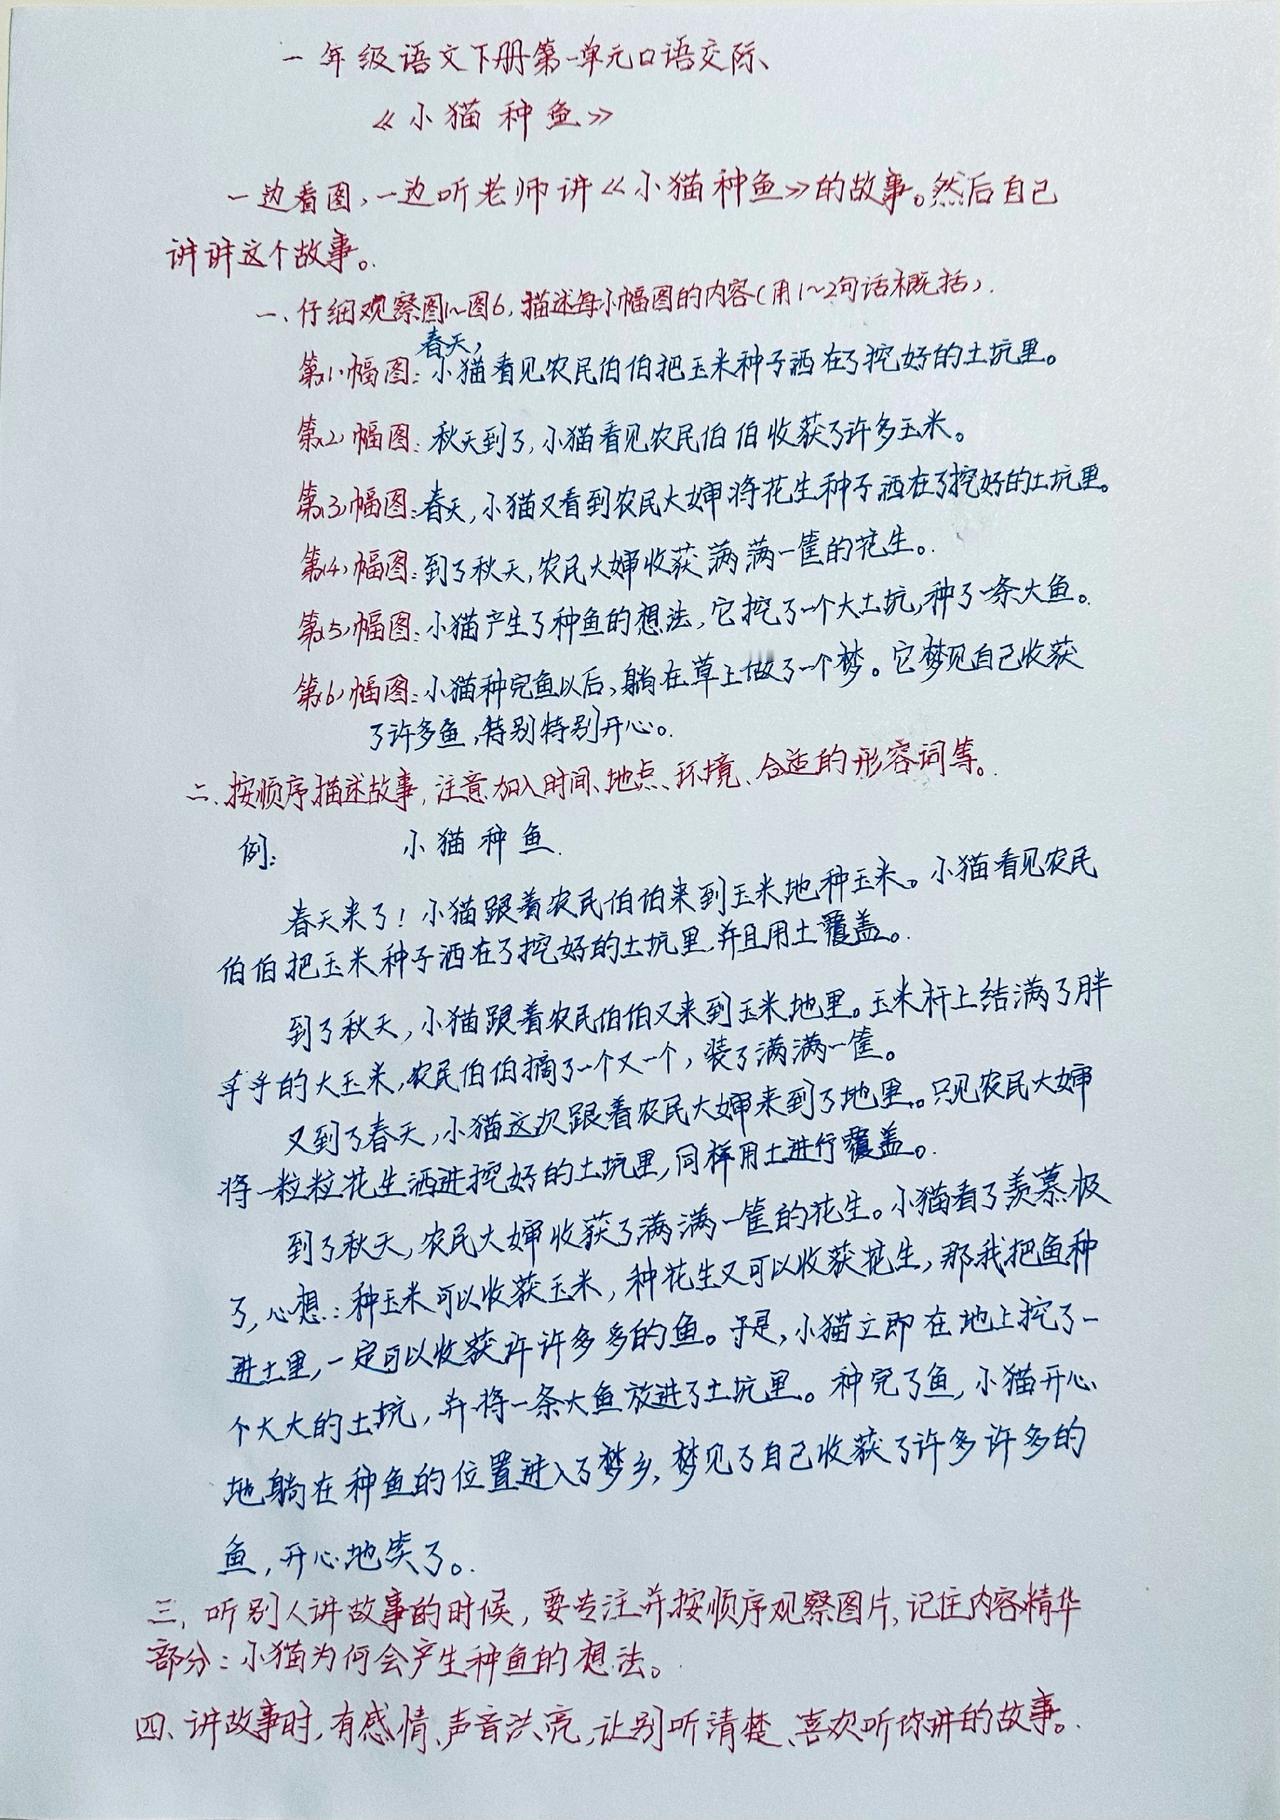 一年级语文下册第一单元口语交际、
《小猫种鱼》
一边看图,一边听老师讲《小猫种鱼》的故事。然后自己
讲讲这个故事。
一、仔细观察图1~图6,描述每小幅图的内容(用1~2句话概括).
春天,
第(1)幅图:小猫看见农民伯伯把玉米种子洒在了挖好的土坑里。
第(2)幅图:秋天到了,小猫看见农民伯伯收获了许多玉米。
第(3)幅图:春天,小猫又看到农民大婶将花生种子洒在了挖好的土坑里。
第(4)幅图:到了秋天,农民大婶收获满满一筐的花生。
第(5)幅图:小猫产生了种鱼的想法,它挖了一个大土坑,种了一条大鱼。
第(6)幅图:小猫种完鱼以后,躺在草上做了一个梦。它梦见自己收获
了许多鱼,特别特别开心。
二、按顺序描述故事,注意加入时间、地点、环境、合适的形容词等。
例: 小猫种鱼
春天来了!小猫跟着农民伯伯来到玉米地种玉米。小猫看见农民
伯伯把玉米种子洒在了挖好的土坑里,并且用土覆盖。
到了秋天,小猫跟着农民伯伯又来到玉米地里。玉米杆上结满了胖
乎乎的大玉米,农民伯伯摘了一个又一个,装了满满一筐。
又到了春天,小猫这次跟着农民大婶来到了地里。只见农民大婶
将一粒粒花生洒进挖好的土坑里,同样用土进行覆盖。
到了秋天,农民大婶收获了满满一筐的花生。小猫看了羡慕极
了,心想:种玉米可以收获玉米,种花生又可以收获花生,那我把鱼种
进土里,一定可以收获许许多多的鱼。于是,小猫立即在地上挖了一
个大大的土坑,并将一条大鱼放进了土坑里。种完了鱼,小猫开心
地躺在种鱼的位置进入了梦乡,梦见了自己收获了许多许多的
鱼,开心地笑了。
三、听别人讲故事的时候,要专注并按顺序观察图片,记住内容精华
部分:小猫为何会产生种鱼的想法。
四、讲故事时,有感情、声音洪亮,让别听清楚、喜欢听你讲的故事。